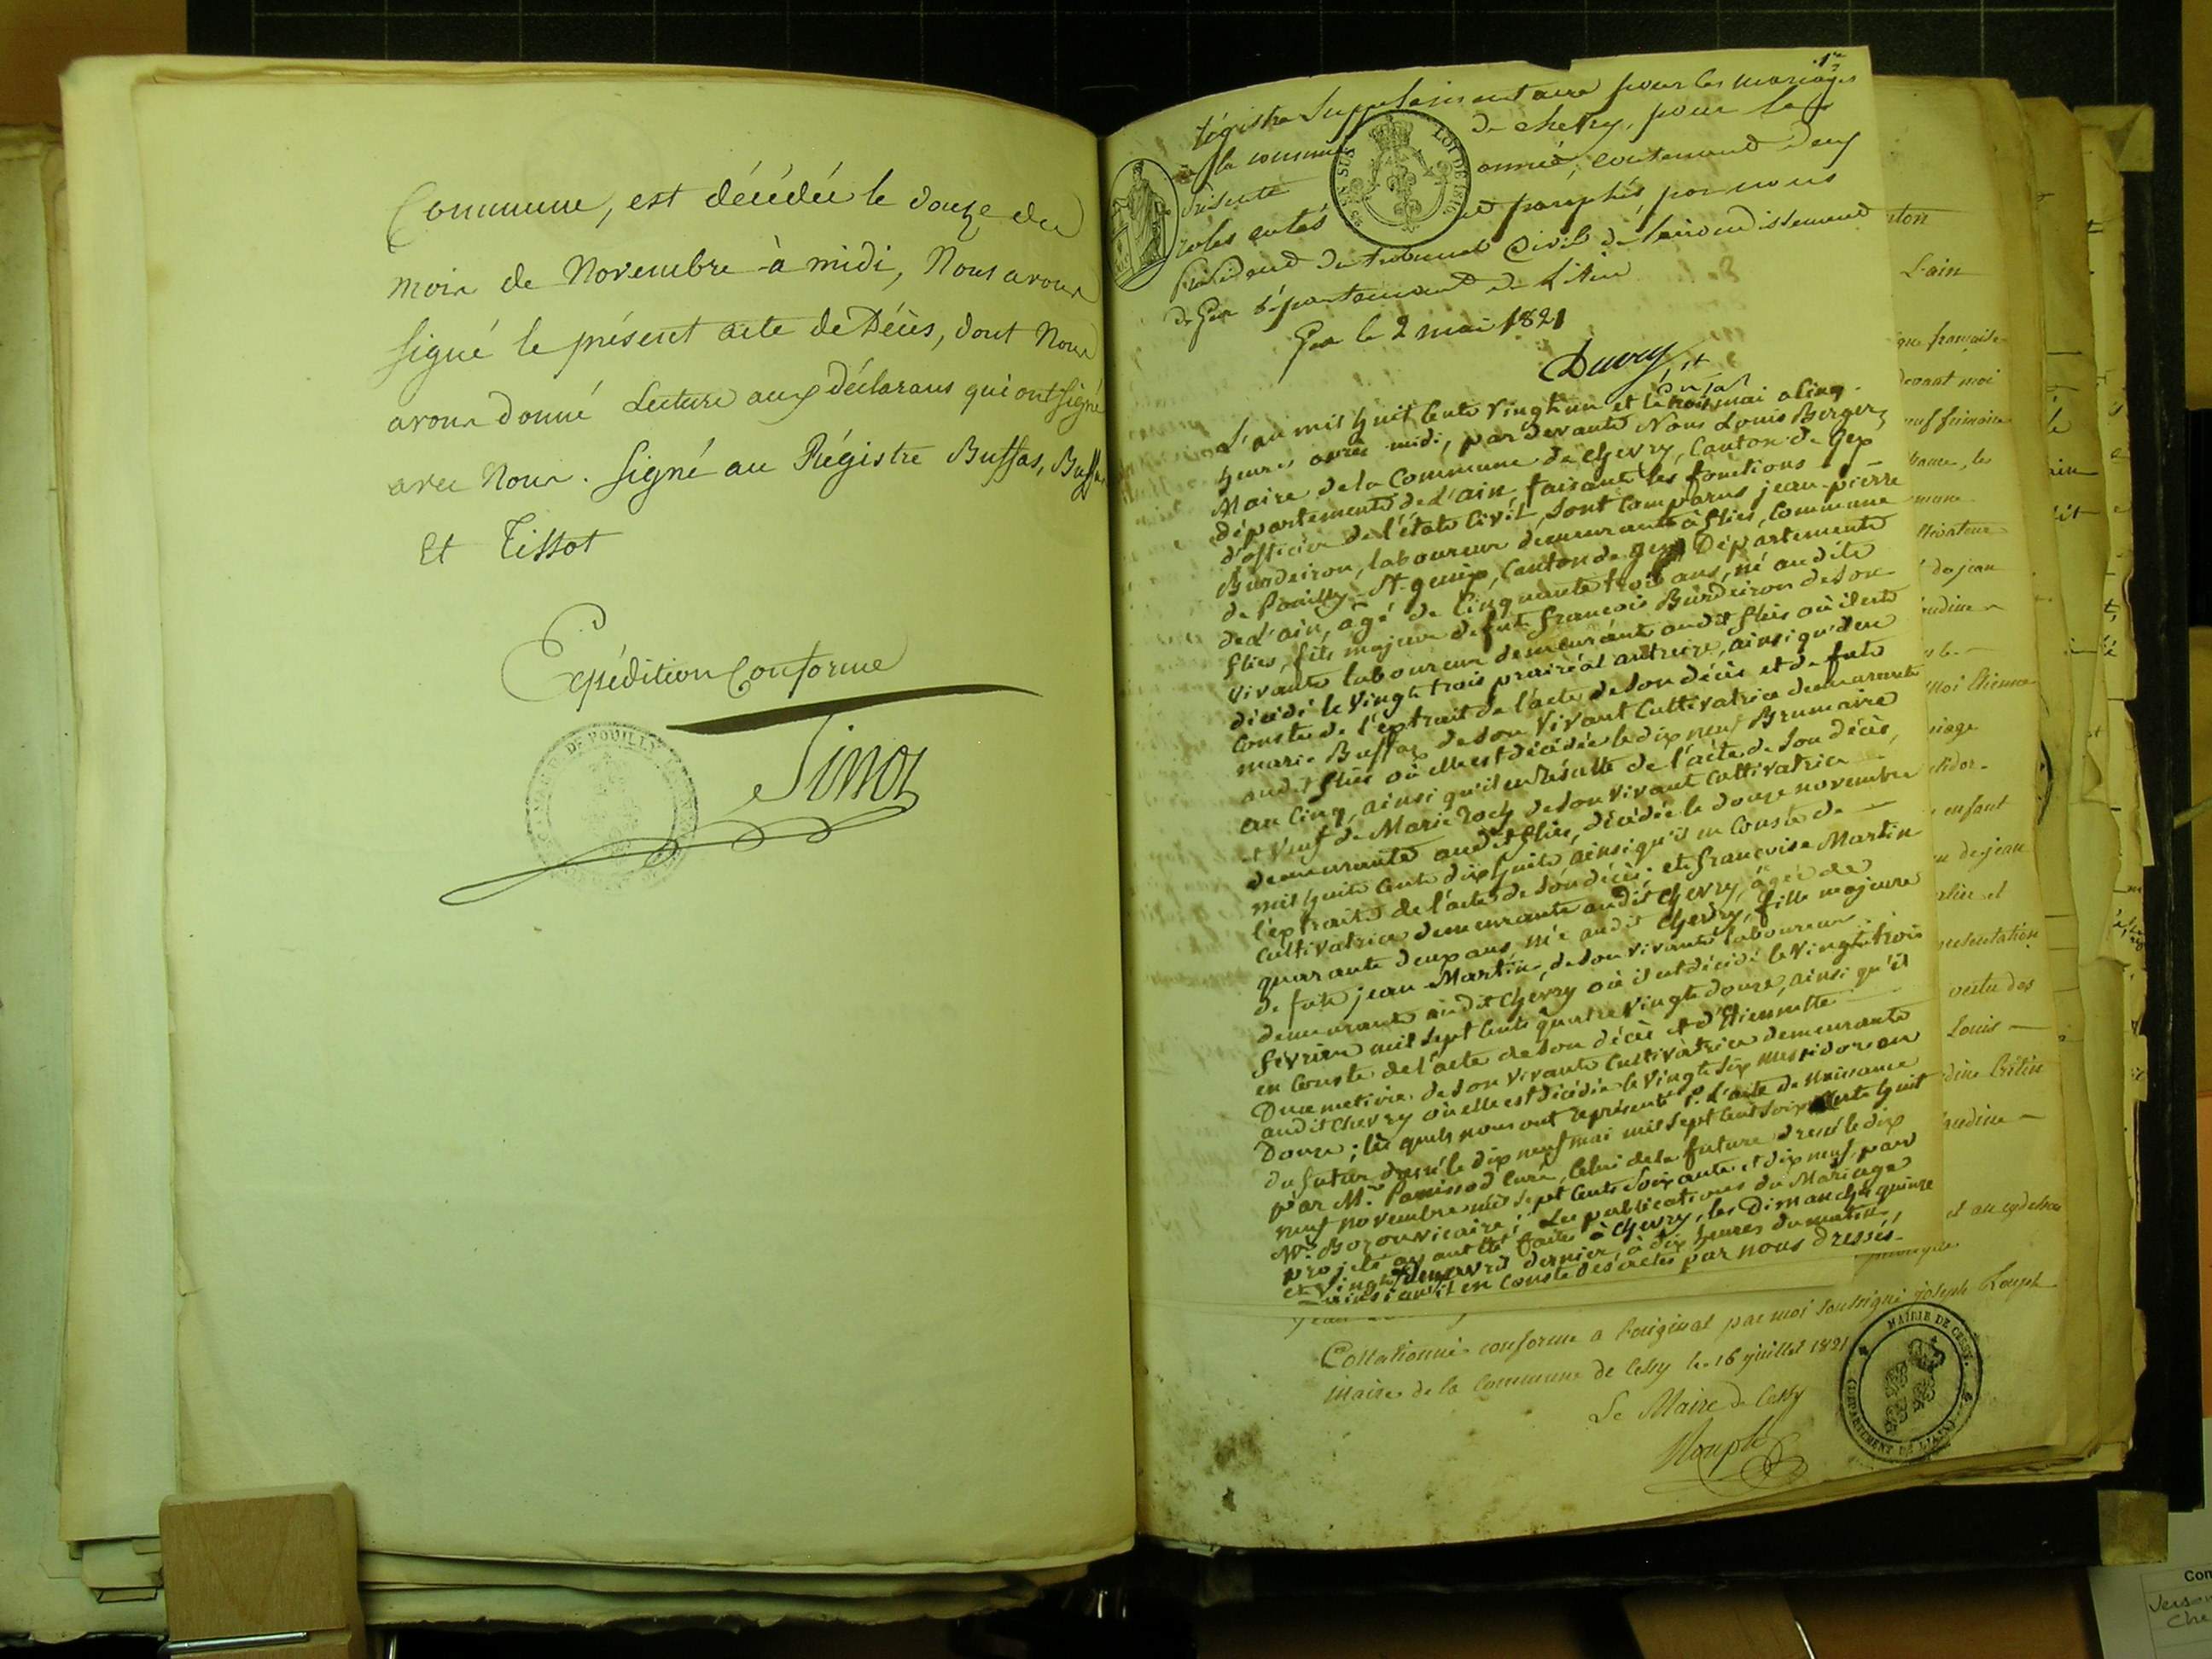 Commune, est décédée le douze du
mois de Novembre à midi, Nous avons
signé le présent acte de Décès, dont Nous
avons donné Lecture aux déclarans qui ont signé
avec Nous. signé au Régistre Buffas,
et Tissot
Expédition Conforme
Tissot
DE POUILLY
1er
régistre Supplémentaire pour les mariages
de la commune de chevry, pour la
présente année, contenant deux
roles cotés et paraphés, par nous
président du tribunal Civil de l'arrondissement
de Gex département de L'Ain
Gex le 2 mai 1821
LOI DE 1816
L'an mil huit cent vingt un et le trois mai a cinq
heures après midi, par devant Nous Louis Berger,
Maire de la Commune de Chevry, Canton de Gex
département de L'ain, faisant les fonctions
d'officier de l'état Civil, sont comparus jean-pierre
Burdeiron, laboureur demeurant à flies, Commune
de Pouilly-St-genix, Canton de gex Département
de L'ain, agé de Cinquante trois ans, né audit
flies, fils majeur de fut francois Burdeiron de son
vivant laboureur demeurant audit flies où il est
décédé le vingt trois prairéal an treize, ainsi qu'il en
Conste de l'extrait de l'acte de son décès et de fut
marie Buffaz de son vivant Cultivatrice demeurante
audit flies où elle est décédée le dix neuf Brumaire
an Cinq, ainsi qu'il en Résulte de l'acte de son décès,
et veuf de Marie Roch de son vivant Cultivatrice
demeurante audit flies, décédée le douze novembre
mil huit cent dix huit ainsi qu'il en Conste de
l'extrait de l'acte de son décès; et francoise Martin
Cultivatrice demeurante audit Chevry, âgée de
quarante deux ans, née audit Chevry, fille majeure
de fut jean Martin, de son vivant laboureur
demeurant audit Chevry où il est décédé le vingt trois
février mil sept cent quatre vingt douze, ainsi qu'il
en Conste de l'acte de son décès et d'Etiennette
Ducimetière de son vivant Cultivatrice demeurante
audit Chevry où elle est décédée le vingt six messidor an
Douze; les quels nous ont représenté 1° L'acte de Naissance
du futur dressé le dix neuf mai mil sept cent soixante huit
par Mr Panissod Curé, Celui de la future dressé le dix
neuf novembre mil sept cent soixante et dix neuf par
Mr Bozon vicaire; Les publications du Mariage
projeté ayant été faites à Chevry, les Dimanches quinze
et vingt deux avril dernier, à dix heures du matin,
ainsi qu'il en Conste des actes par nous dressés
L'ain
française
devant moi
de jean
Etienne
enfant
de jean
vertu des
Louis
Collationné conforme a l'original par moi soussigné joseph
Maire de la Commune de Cessy le 16 juillet 1821
Le Maire de Cessy
MAIRIE DE CESSY.
(DEPARTEMENT DE L'AIN)